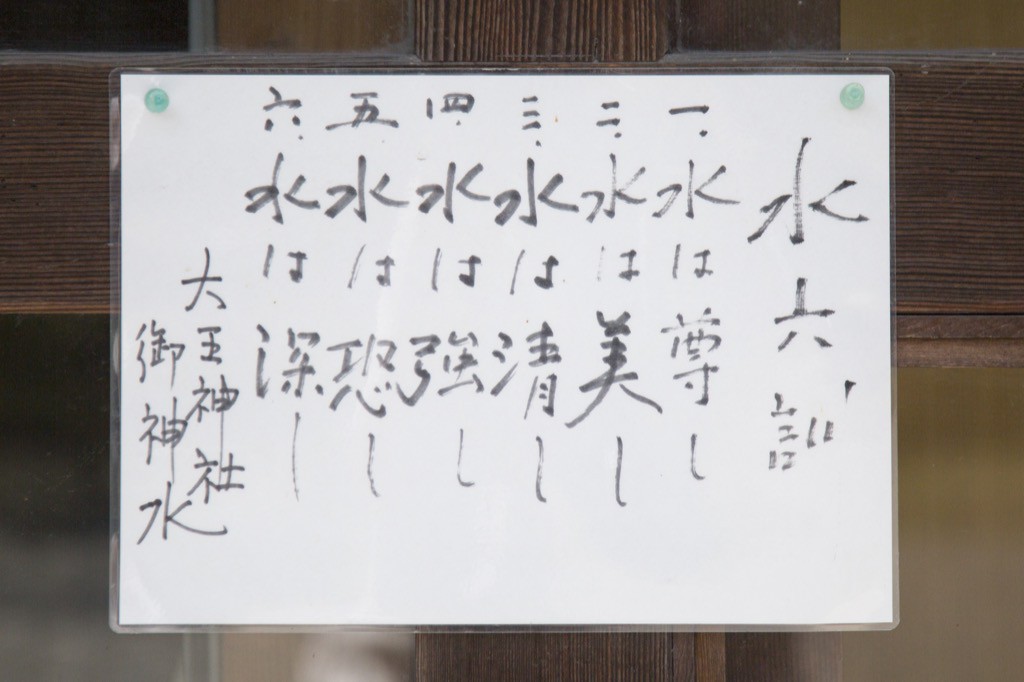 水六訓
一、水は尊し
二、水は美し
三、水は清し
四、水は強し
五、水は恐し
六、水は深し
大王神社
御神水